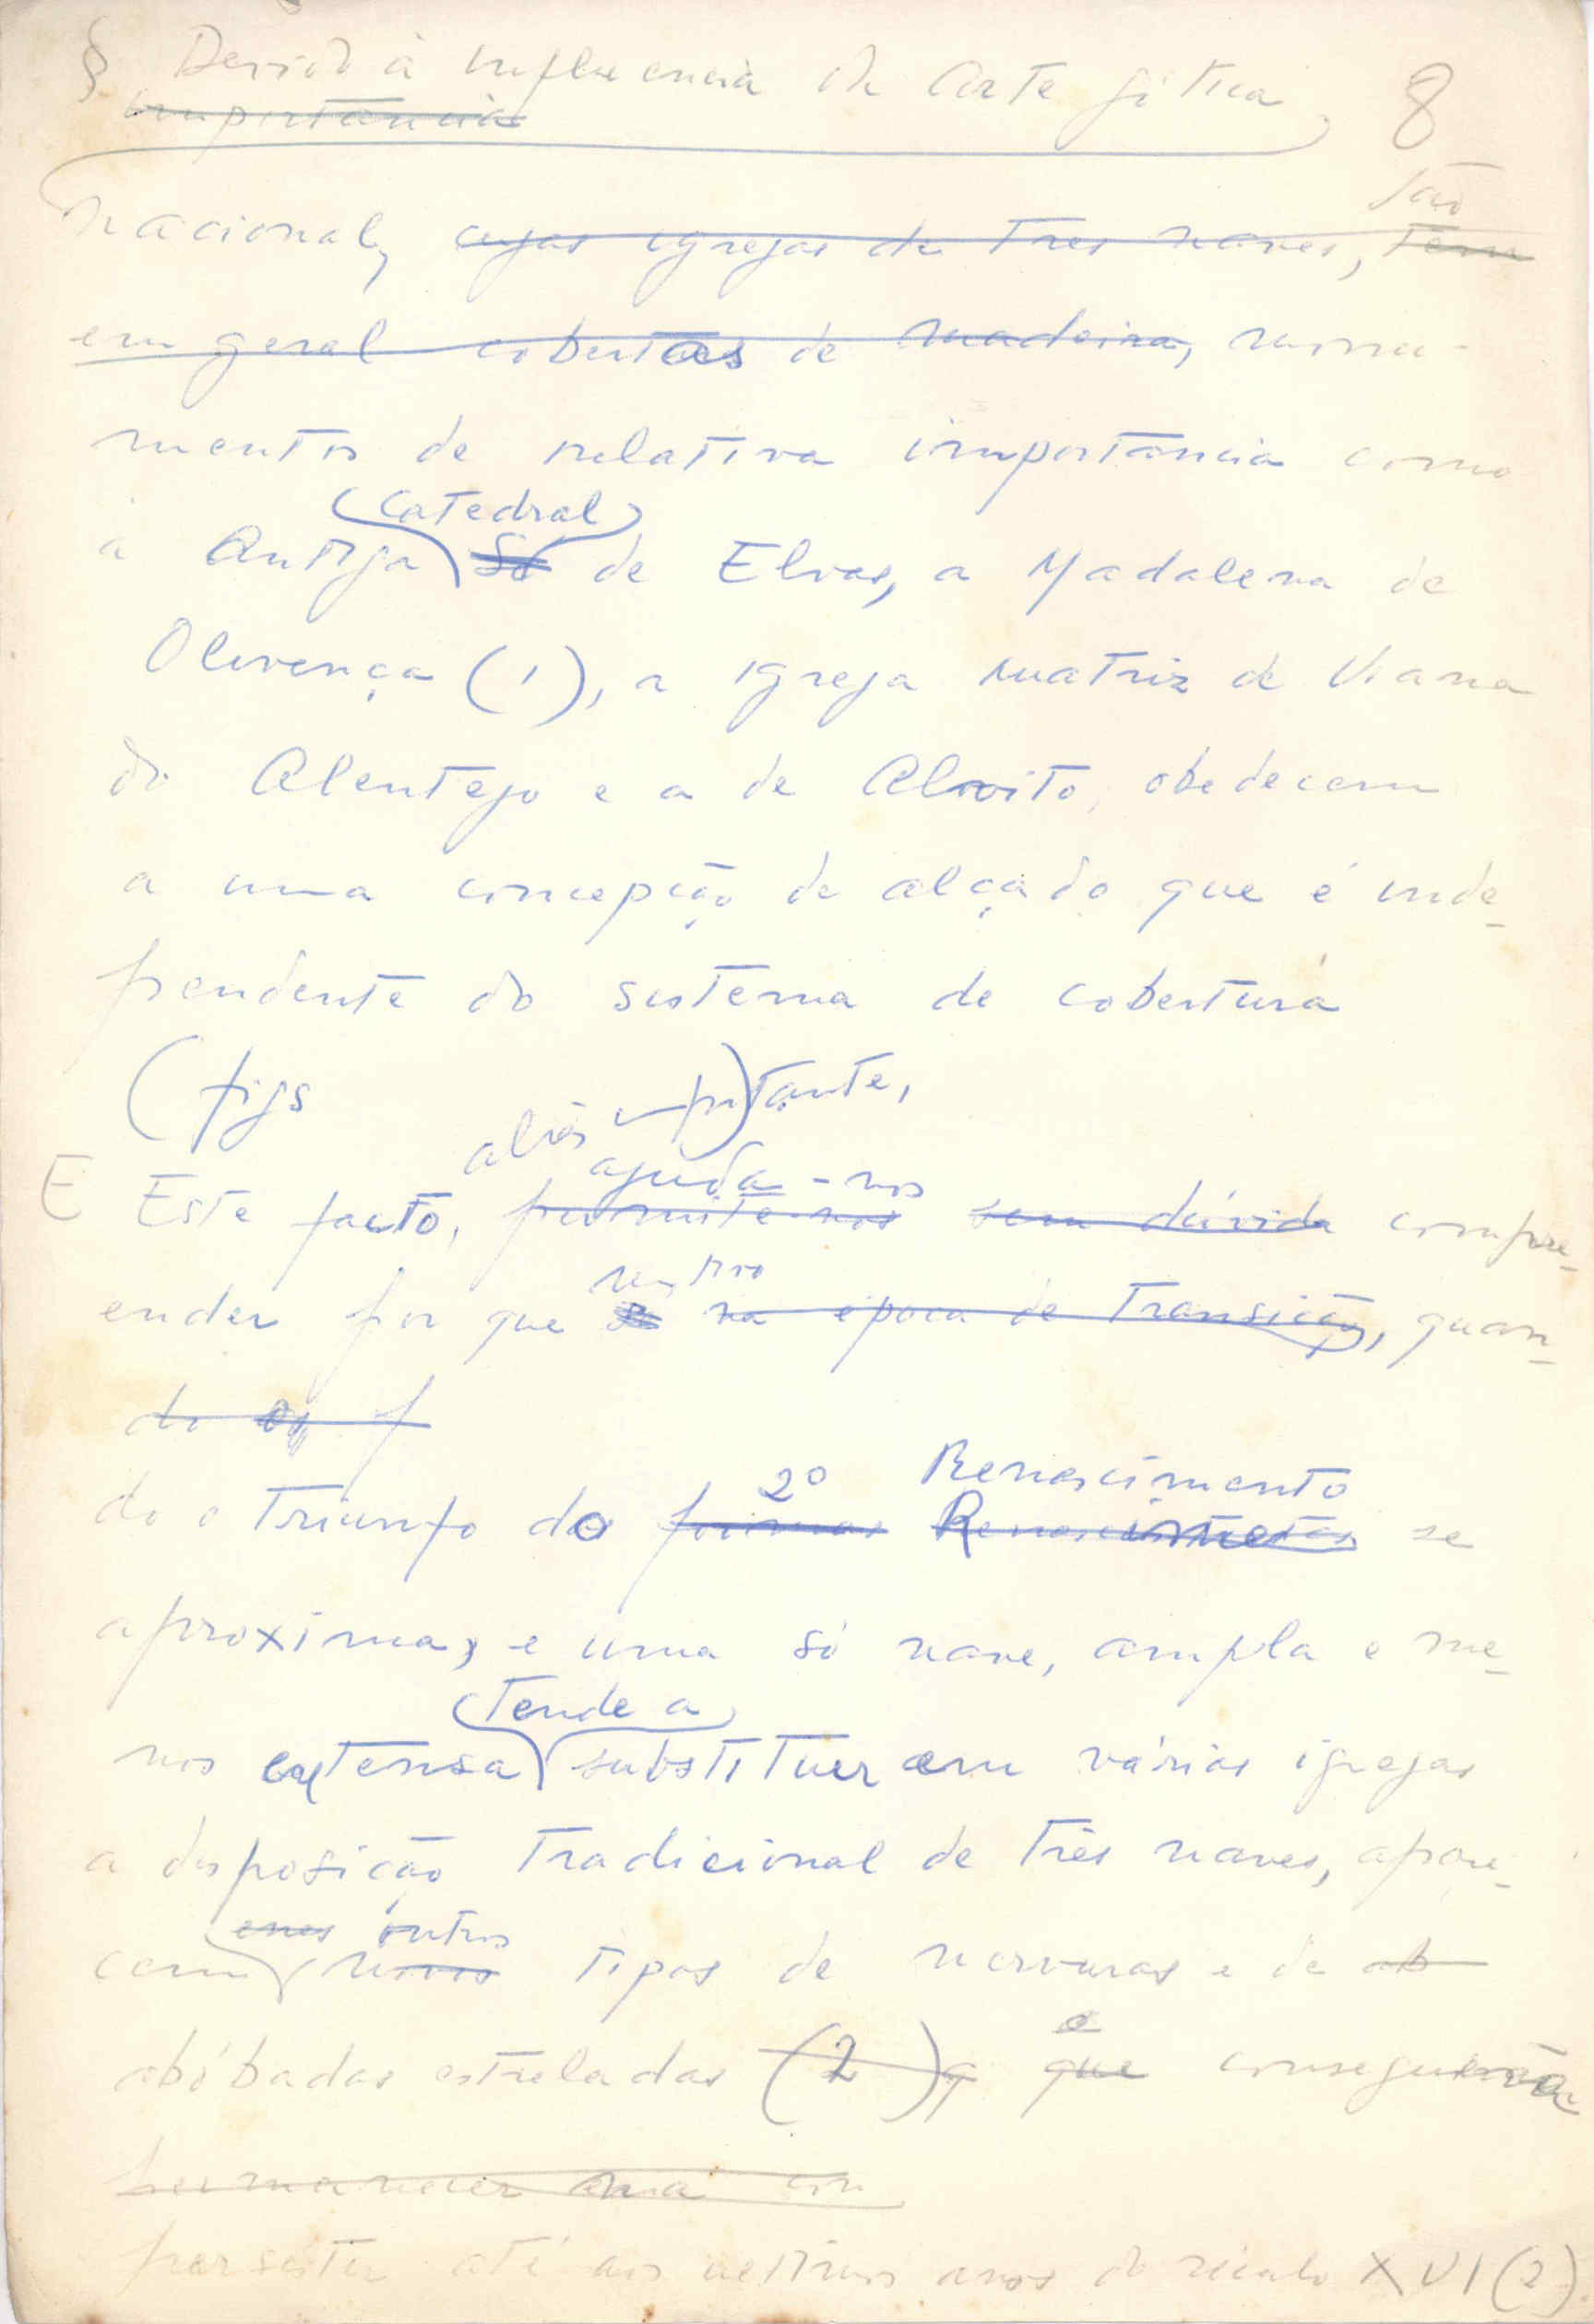 § Devido à influencia da Arte gótica, 8
importancia
nacional, cujas igrejas de tres naves, tem
são
em geral cobertas de madeira, monu-
mentos de relativa importancia como
Catedral
a Antiga Sé de Elvas, a Madalena de
Olivença (1), a igreja matriz de Viana
do Alentejo e a de Alvito, obedecem
a uma concepção de alçado que é inde-
pendente do sistema de cobertura
(figs )
aliás importante,
ajuda-nos
E Este facto, permite-nos sem dúvida compre-
ender por que
na época de Transição, quan-
do os f
2º Renascimento
do o Triunfo do formas Renascimento se
aproxima, e uma só nave, ampla e me-
Tende a
nos extensa substituir em várias igrejas
a disposição Tradicional de Três naves, apare-
esses outros
cem novos Tipos de nervuras e de ab
abóbadas estreladas (2) q que
e
permanecer con
persistir até aos ultimos anos do século XVI (2)